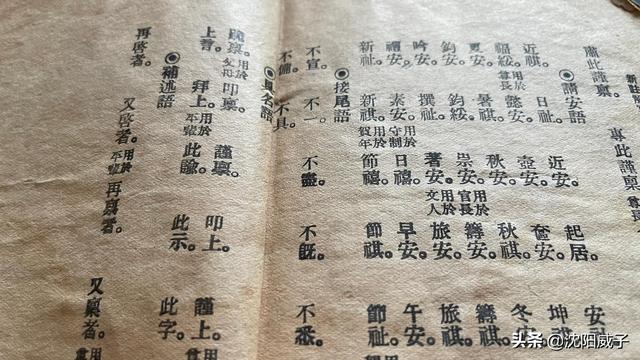 肅此謹稟 專此謹稟 尊長
◉請安語
近祺。日祉。近安。起居。安
福綏。用於尊長 懿安。壼安。奩安。坤祺
夏安。暑祺。秋安。秋祺。冬安
鈞安。鈞綏。崇安。用於官長 籌安。籌祺。
吟安。撰祺。著安。用於文人 旅安。旅祺。
禮安。素安。用於守制 日禧。早安。午安。
新祉。新祺。用於賀年 節禧。節祺。節祉。
◉接尾語
不宣。不一。不盡。不旣。不悉。
不備。不具。
◉具名語
跪稟。用於父母 叩稟。謹稟。叩上。謹上。
上書。拜上。用於平輩 此諭。此示。此字。
◉補述語
再啓者。又啓者。用於平輩 再稟者。又稟者。
头条 @沈阳威子